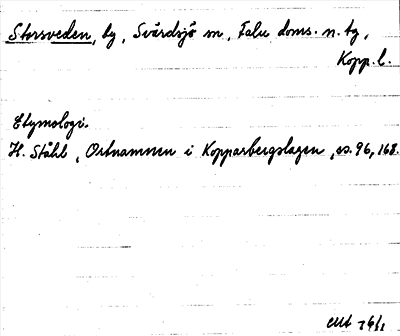 Storsveden, by, Svärdsjö sn, Falu doms. n. tg,
Kopp. l.
Etymologi.
H. Ståhl, Ortnamnen i Kopparbergslagen, ss. 96, 168.